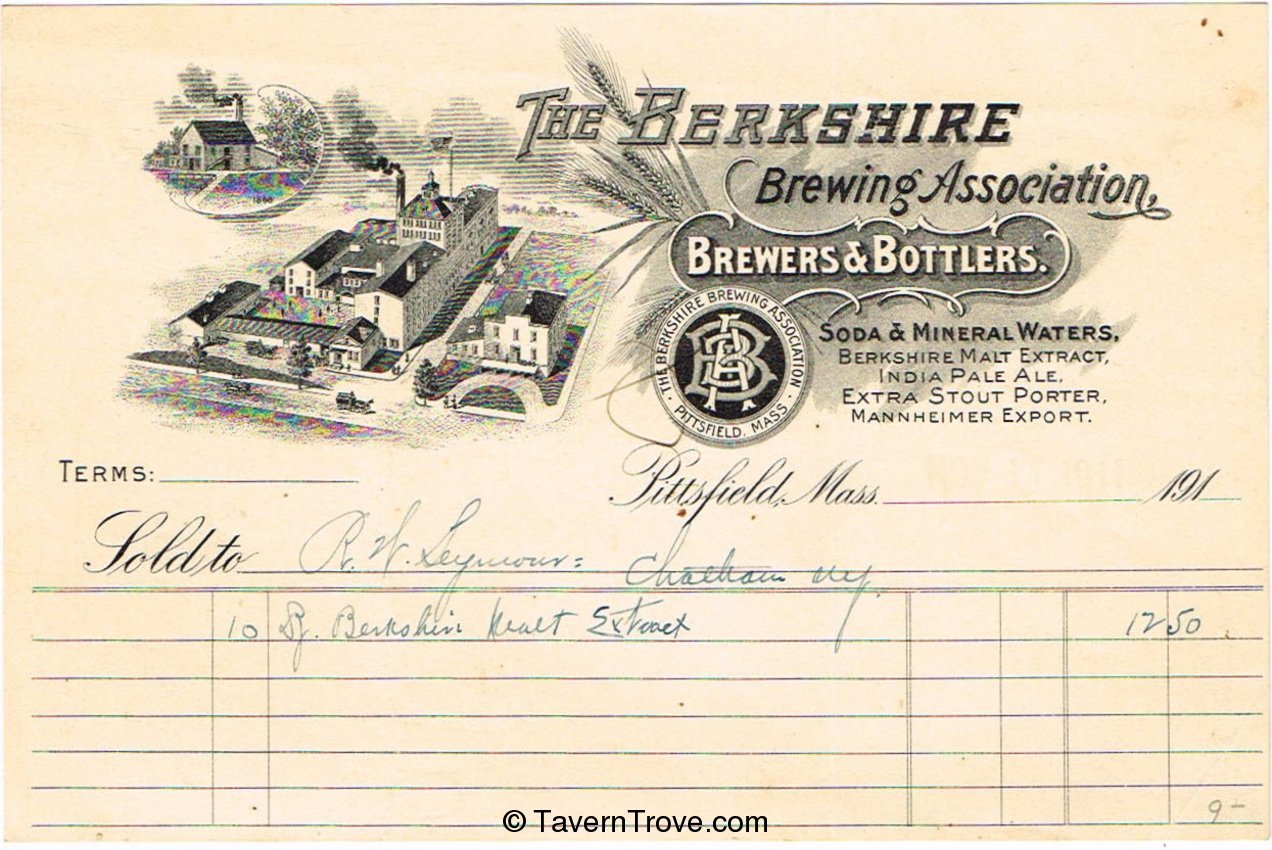 THE BERKSHIRE
Brewing Association,
BREWERS & BOTTLERS.
THE BERKSHIRE BREWING ASSOCIATION
PITTSFIELD, MASS.
BBA
SODA & MINERAL WATERS,
BERKSHIRE MALT EXTRACT,
INDIA PALE ALE,
EXTRA STOUT PORTER,
MANNHEIMER EXPORT.
TERMS:
Pittsfield, Mass. 191
Sold to R. W. Seymour Chatham NY.
10 Dz. Berkshire Malt Extract 12 50
9-
© TavernTrove.com